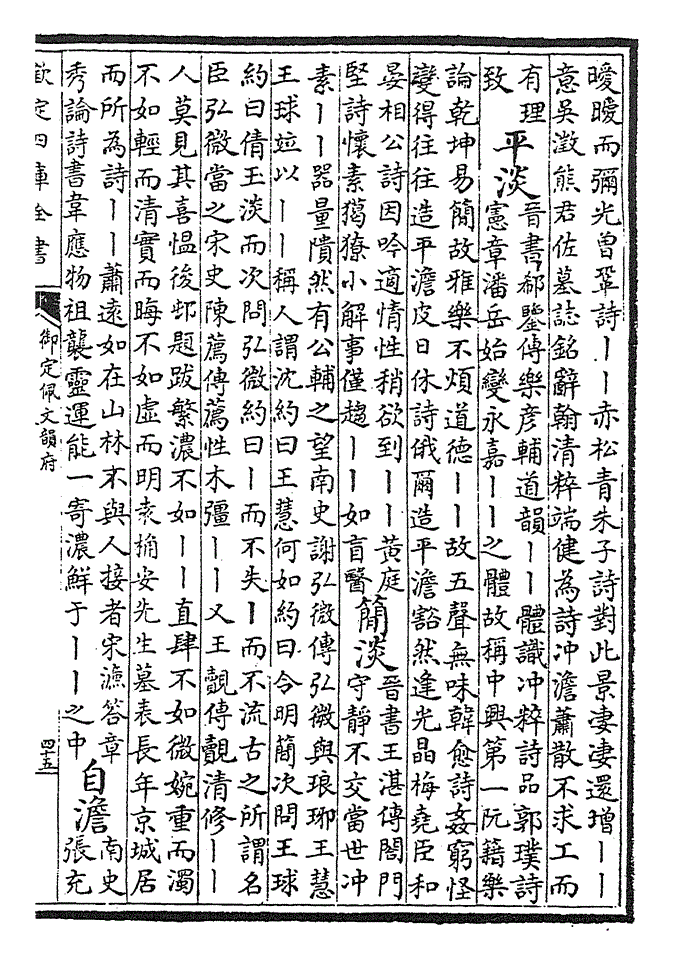 曖曖而彌光曾鞏詩丨丨赤松青朱子詩對此景淒淒還增丨丨
意吳澂熊君佐墓誌銘辭翰清粹端健為詩冲澹蕭散不求工而
有理
致
平淡
晉書郗鑒傳樂彥輔道韻丨丨體識冲粹詩品郭璞詩
憲章潘岳始變永嘉丨丨之體故稱中興第一阮籍樂
論乾坤易簡故雅樂不煩道德丨丨故五聲無味韓愈詩姦窮怪
變得往往造平澹皮日休詩俄爾造平澹豁然逢光晶梅堯臣和
晏相公詩因吟適情性稍欲到丨丨黃庭
堅詩懷素猲獠小解事僅趨丨丨如盲醫
簡淡
晉書王湛傳闔門
守靜不交當世冲
素丨丨器量隤然有公輔之望南史謝弘微傳弘微與琅琊王慧
王球竝以丨丨稱人謂沈約曰王慧何如約曰令明簡次問王球
約曰倩玉淡而次問弘微約曰丨而不失丨而不流古之所謂名
臣弘微當之宋史陳薦傳薦性木彊丨丨又王覿傳覿清修丨丨
人莫見其喜愠後邨題跋繁濃不如丨丨直肆不如微婉重而濁
不如輕而清實而晦不如虛而明袁桷安先生墓表長年京城居
而所為詩丨丨蕭遠如在山林不與人接者宋濂答章
秀論詩書韋應物祖襲靈運能一寄濃鮮于丨丨之中
自澹
南史
張充
欽定四庫全書
御定佩文韻府
四十五